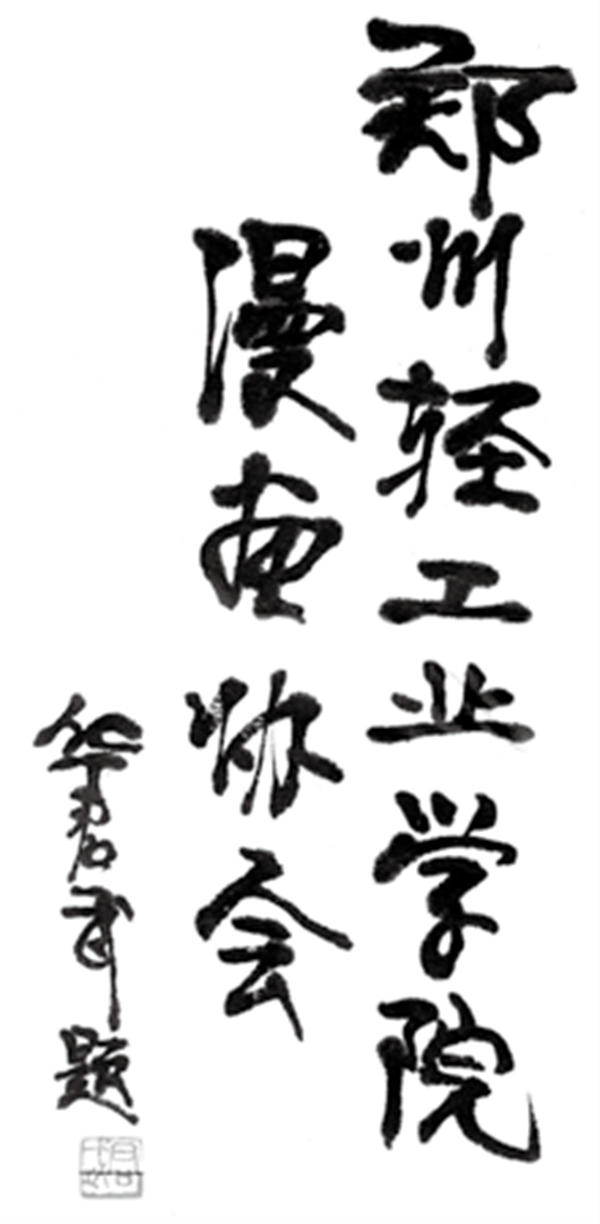 郑州轻工业学院
漫画协会
华君武题